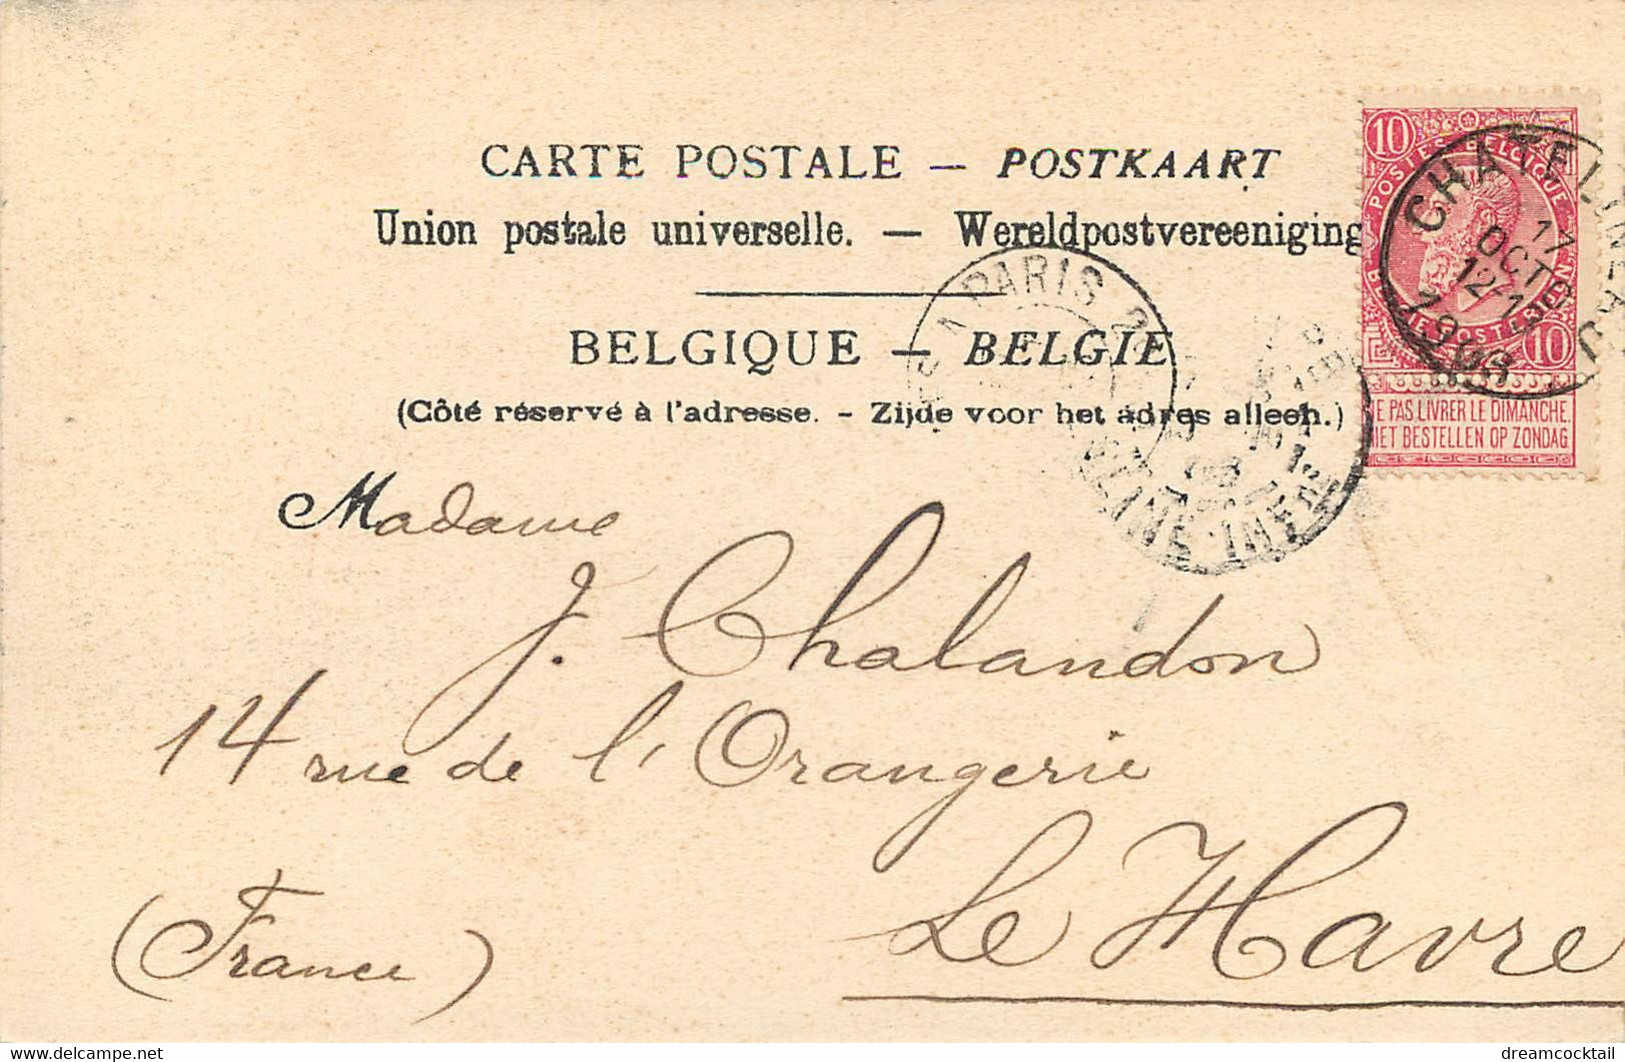 CARTE POSTALE — POSTKAART
Union postale universelle. — Wereldpostvereeniging
BELGIQUE — BELGIE
(Côté réservé à l'adresse. - Zijde voor het adres alleen.)
10 10
POSTES BELGIQUE
10
NE PAS LIVRER LE DIMANCHE.
NIET BESTELLEN OP ZONDAG
CHATELINEAU
17
OCTO
12-13
1905
PARIS
SEINE-INFRE
Madame
J. Chalandon
14 rue de l'Orangerie
Le Havre
(France)
dreamcocktail